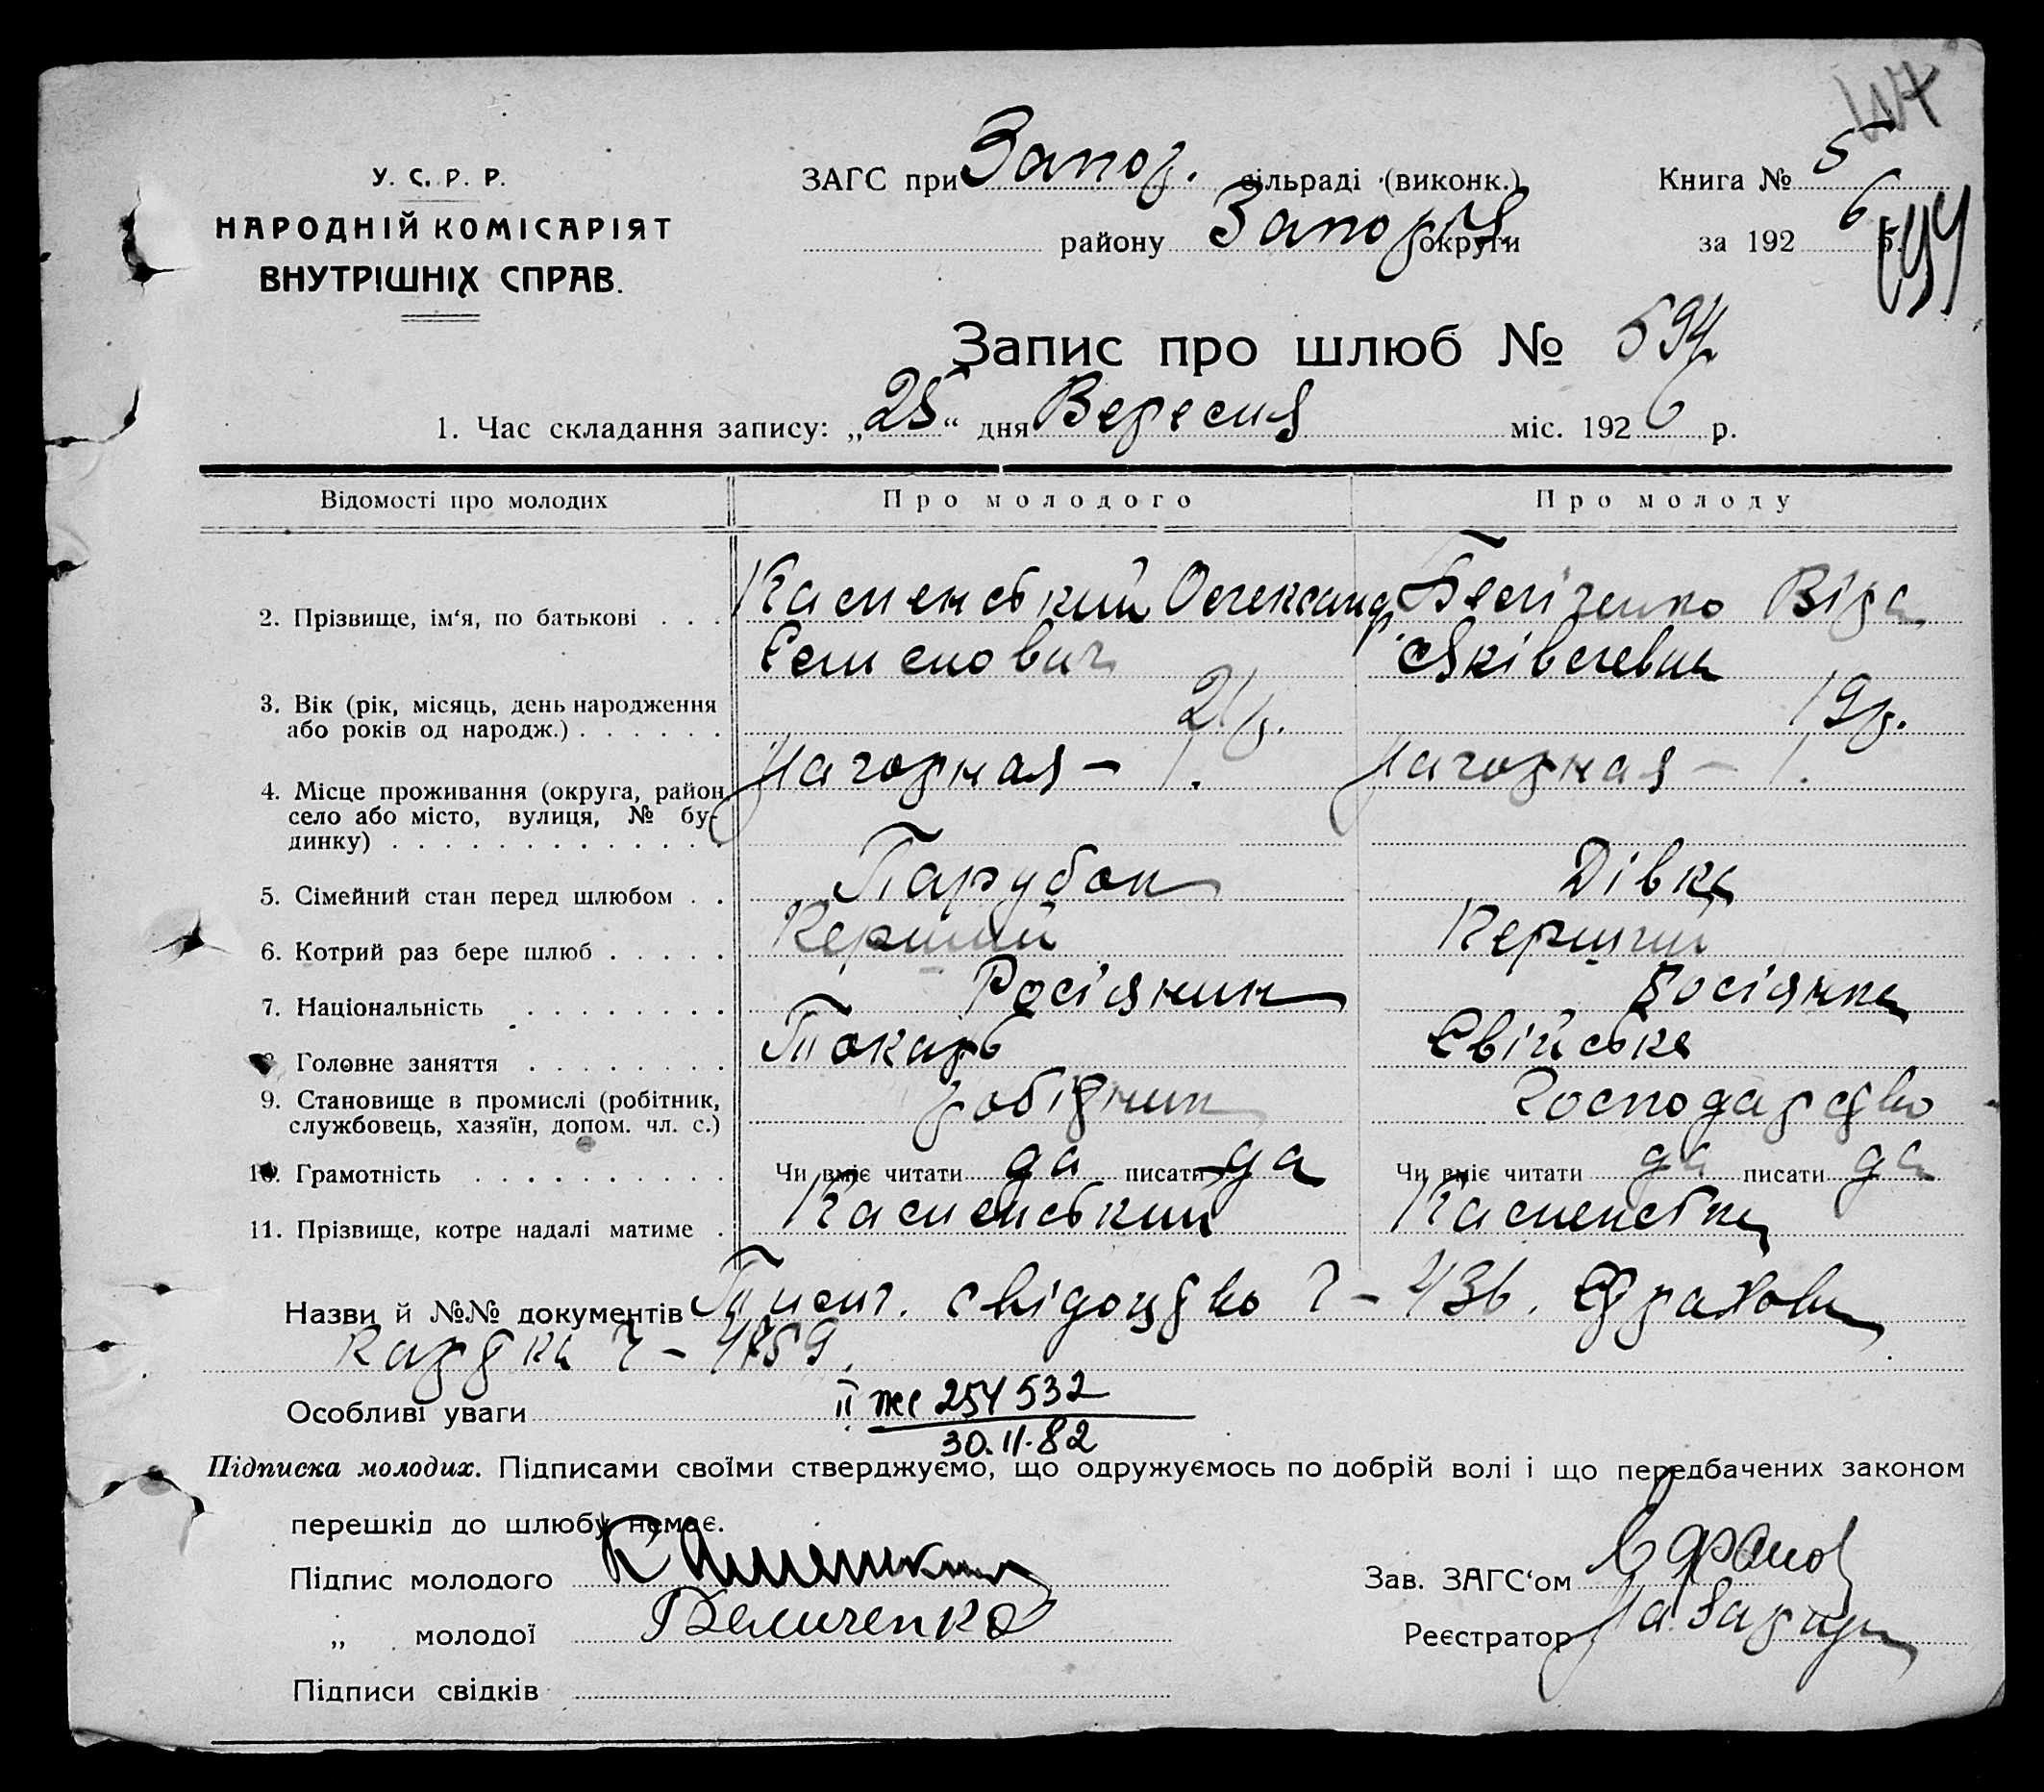 У. С. Р. Р.
НАРОДНІЙ КОМІСАРІЯТ
ВНУТРІШНІХ СПРАВ.
ЗАГС при Запор. сільраді (виконк.)
району Запоріз. округи
Книга № 5
за 192 6
Запис про шлюб № 594
1. Час складання запису: „25“ дня Вересня міс. 1926 р.
Відомості про молодих Про молодого Про молоду
2. Прізвище, ім‘я, по батькові . . . Каменський Олександр Беличенко Віра
Семенович Яківлевна
3. Вік (рік, місяць, день народження
або років од народж.) . . . . . . 21 р. 19 р.
4. Місце проживання (округа, район, Нагорная – 1. Нагорная – 1.
село або місто, вулиця, № бу-
динку) . . . . . . . . . . . . . .
5. Сімейний стан перед шлюбом . . Парубок Дівка
6. Котрий раз бере шлюб . . . . . Перший Перший
7. Національність . . . . . . . . Росіянин Росіянка
8. Головне заняття . . . . . . . . Токарь Свійське
9. Становище в промислі (робітник, робітник Господарство
службовець, хазяїн, допом. чл. с.)
10. Грамотність . . . . . . . . . . Чи вміє читати да писати да Чи вміє читати да писати да
11. Прізвище, котре надалі матиме . Каменський Каменська
Назви й №№ документів свідоцтво Ч – 436. Страхова
картка Ч – 4759.
Особливі уваги II же 254532
30.11.82
Підписка молодих. Підписами своїми стверджуємо, що одружуємось по добрій волі і що передбачених законом
перешкід до шлюбу немає.
Підпис молодого
„ молодої Беличенко
Зав. ЗАГС‘ом
Реєстратор
Підписи свідків